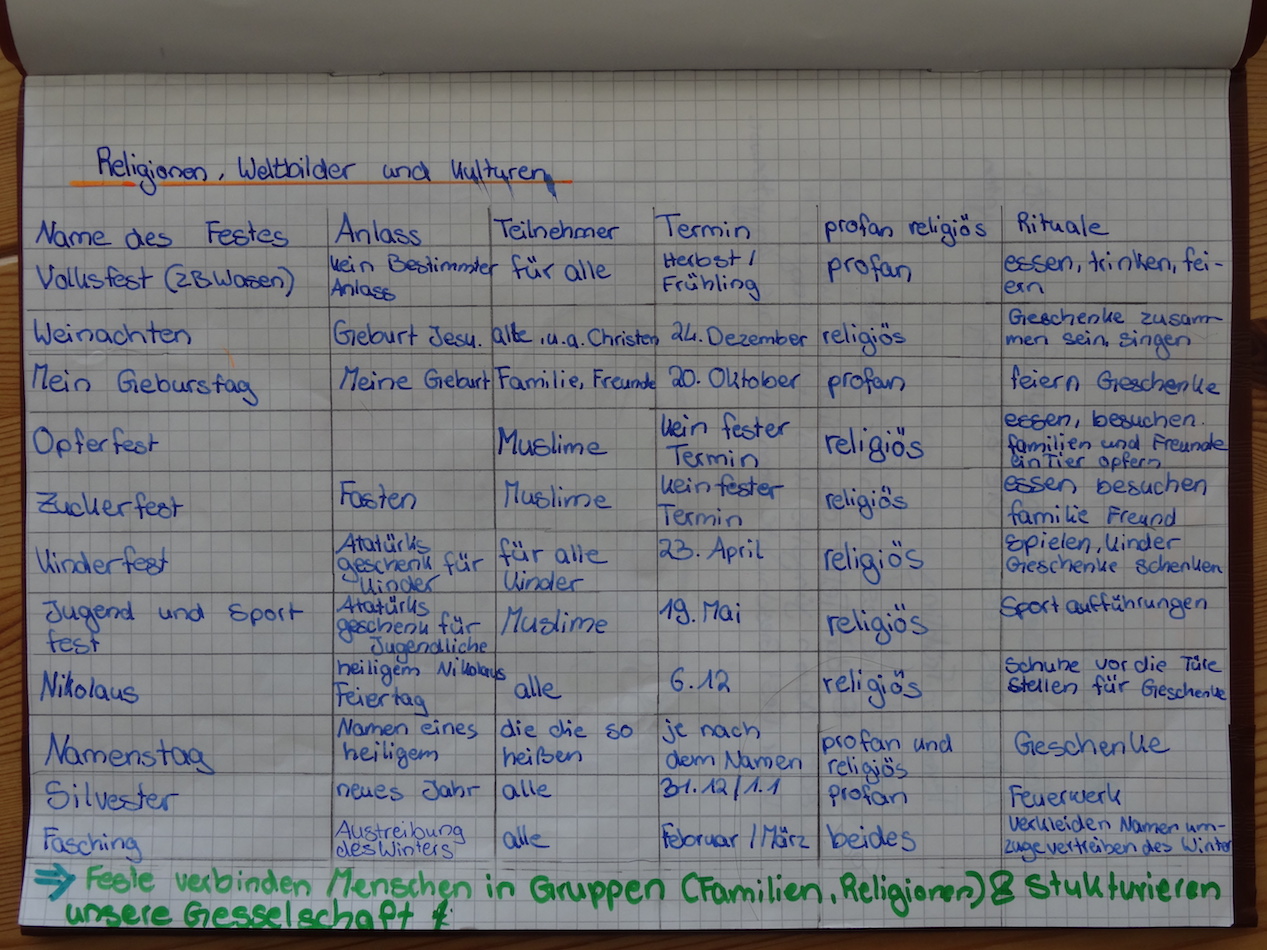 Religionen, Weltbilder und Kulturen
Name des Festes Anlass Teilnehmer Termin profan religiös Rituale
Volksfest (zB Wasen) kein Bestimmter Anlass für alle Herbst / Frühling profan essen, trinken, fei-ern
Weinachten Geburt Jesu. alle, u.a. Christen 24. Dezember religiös Geschenke zusam-men sein, singen
Mein Geburstag Meine Geburt Familie, Freunde 20. Oktober profan feiern Geschenke
Opferfest Muslime kein fester Termin religiös essen, besuchen. familien und Freunde ein Tier opfern
Zuckerfest Fasten Muslime kein fester Termin religiös essen besuchen familie Freund
Kinderfest Atatürks geschenk für Kinder für alle Kinder 23. April religiös spielen, Kinder Geschenke schenken
Jugend und Sport fest Atatürks geschenk für Jugendliche Muslime 19. Mai religiös Sportaufführungen
Nikolaus heiligem Nikolaus Feiertag alle 6.12 religiös Schuhe vor die Türe stellen für Geschenke
Namenstag Namen eines heiligem die die so heißen je nach dem Namen profan und religiös Geschenke
Silvester neues Jahr alle 31.12/1.1 profan Feuerwerk
Fasching Austreibung des Winters alle Februar / März beides verkleiden Narren um-züge vertreiben des Winter
⇒ Feste verbinden Menschen in Gruppen (Familien, Religionen) & stukturieren
unsere Gesselschaft